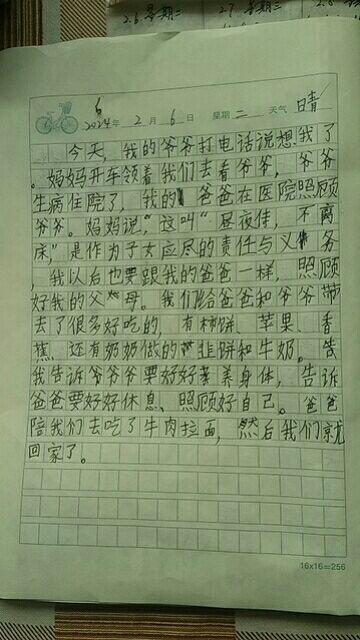 2.6 星期二
2.7 星期三
2024年2月6日 星期二 天气 晴
今天，我的爷爷打电话说想我了
。妈妈开车领着我们去看爷爷，爷爷
生病住院了，我的爸爸在医院照顾
爷爷。妈妈说，“这叫“昼夜侍，不离
床，”是作为子女应尽的责任与义务
，我以后也要跟我的爸爸一样，照顾
好我的父母。我们给爸爸和爷爷带
去了很多好吃的，有柿饼、苹果、香
蕉，还有奶奶做的韭饼和牛奶。告
我告诉爷爷爷要好好养身体，告诉
爸爸要好好休息、照顾好自己。爸爸
陪我们去吃了牛肉拉面，然后我们就
回家了。
16x16=256